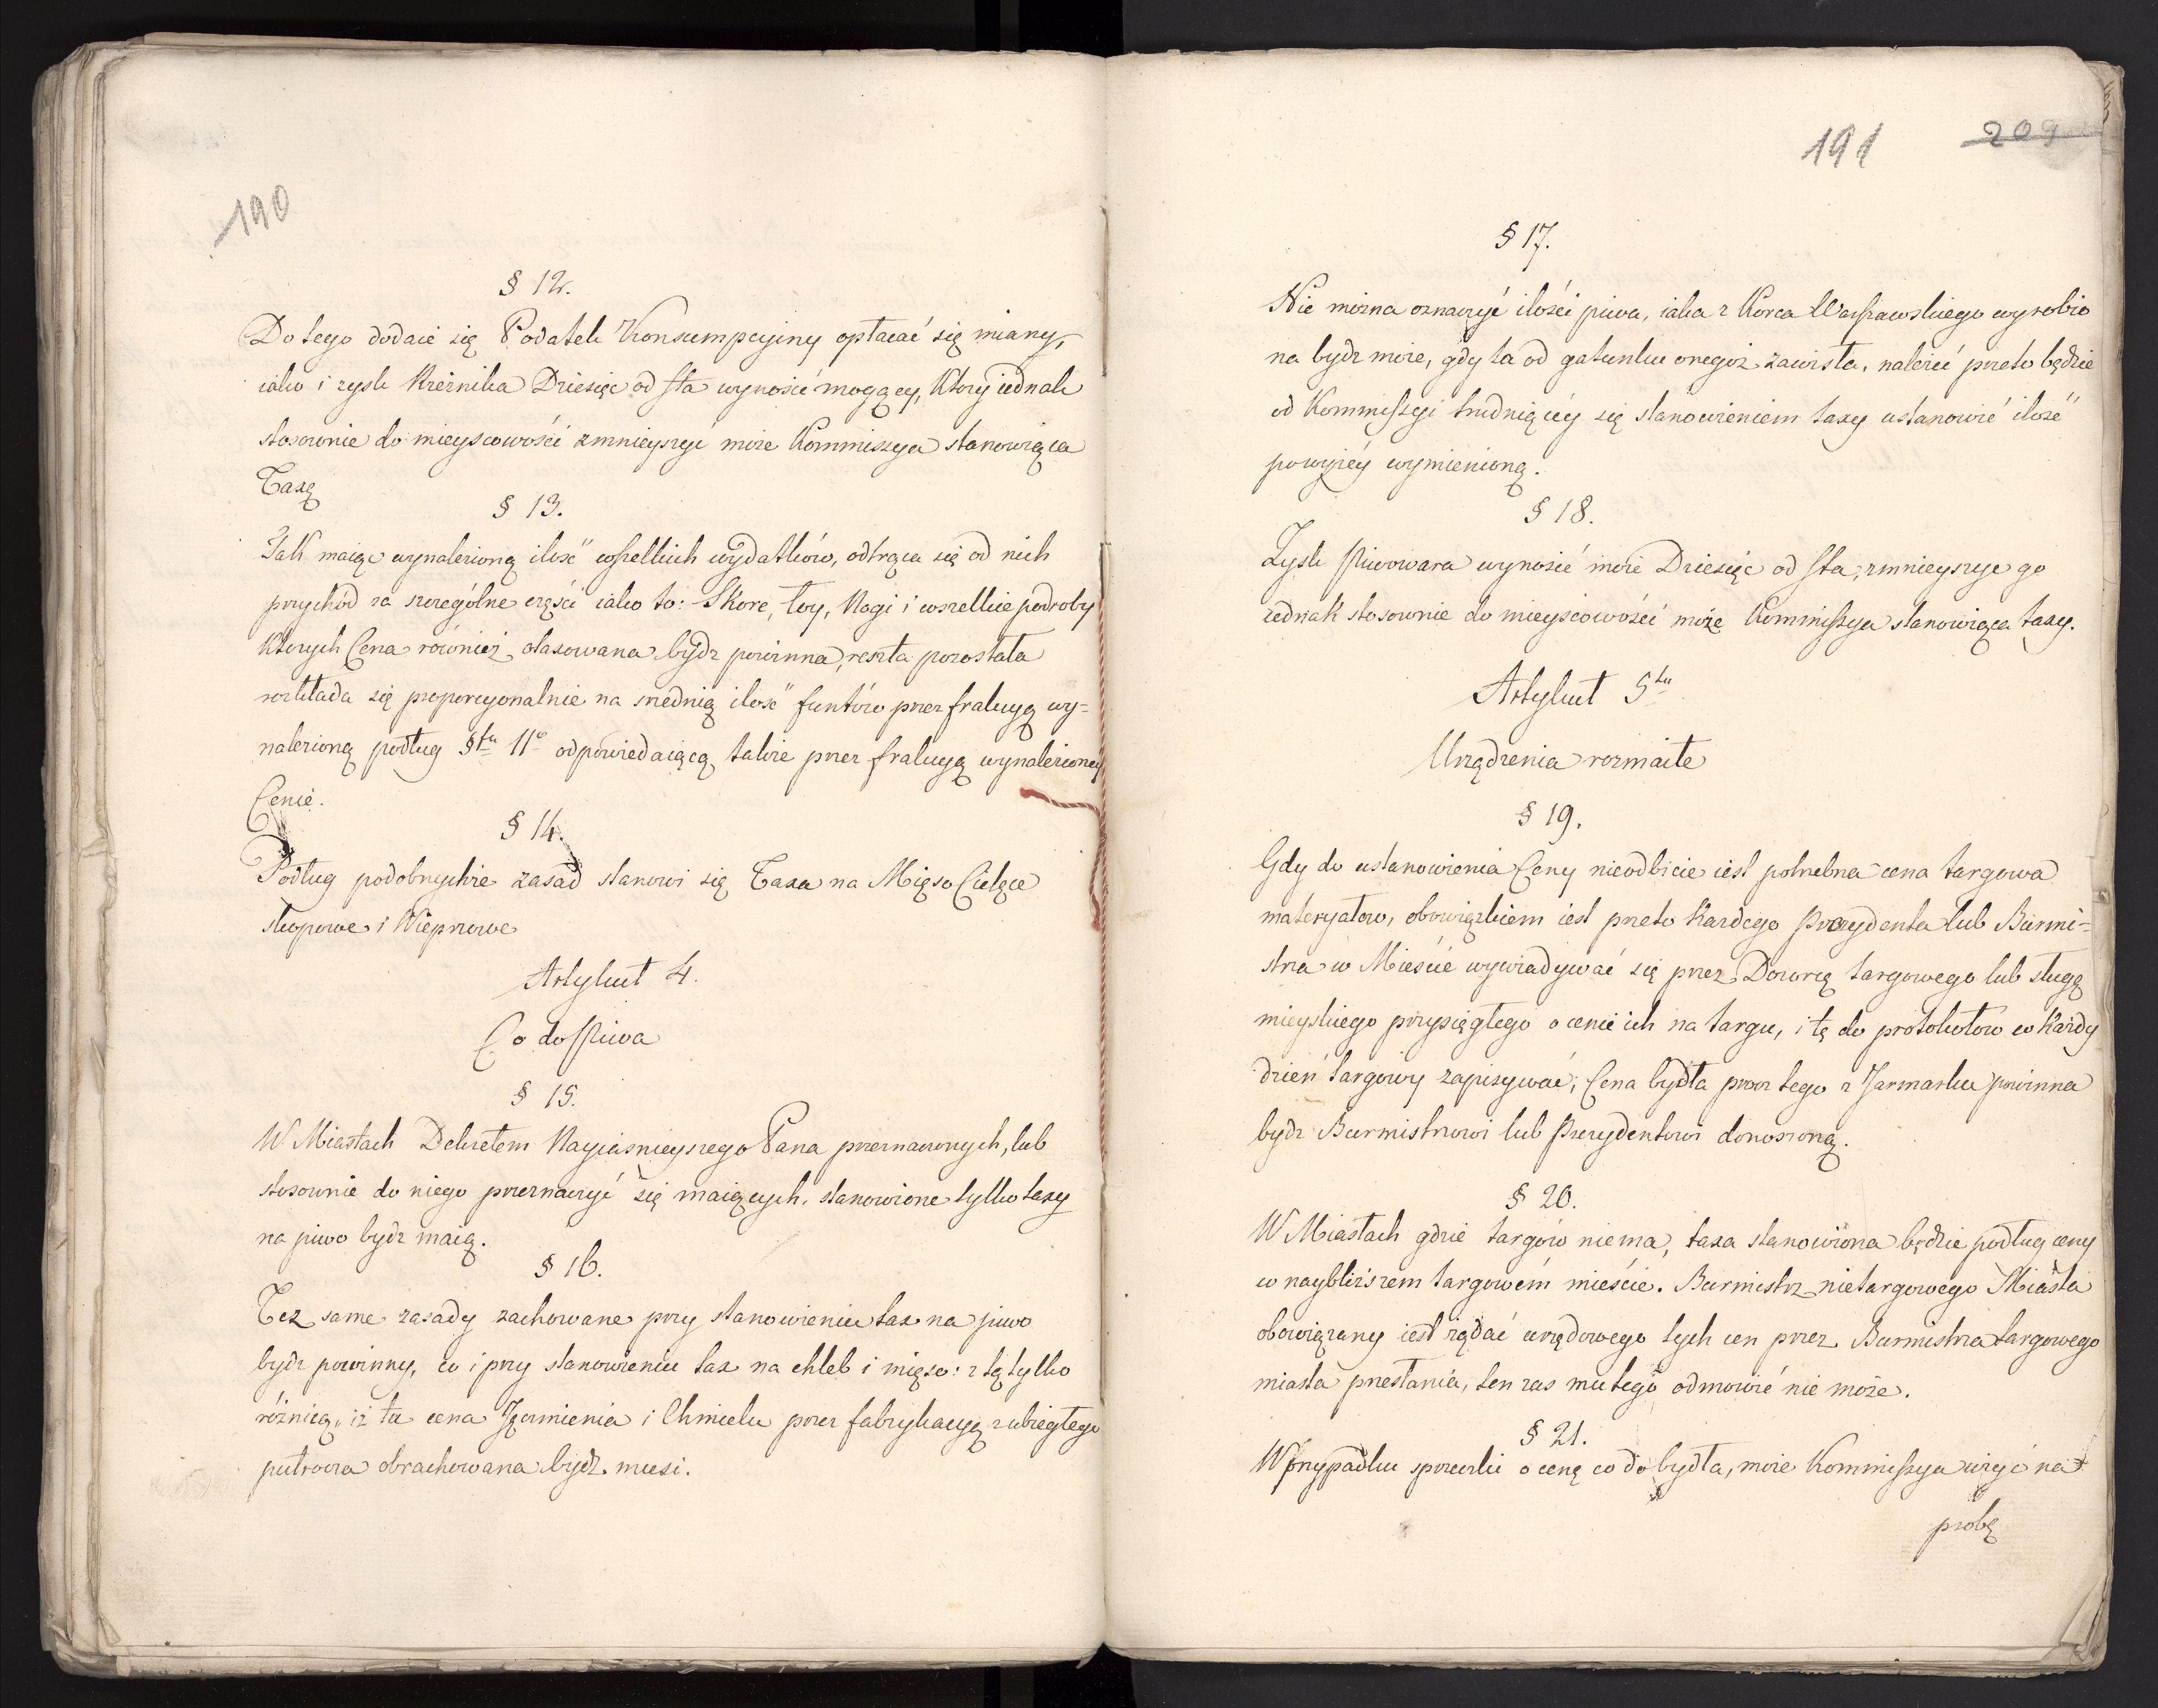 190
§ 12.
Do tego dodaie się Podatek Konsumpcyiny opłacać się miany,
iako i zysk Rzeźnika Dziesięć od sta wynosić mogący, Który iednak
stosownie do mieyscowości zmnieyszyć może Kommissya stanowiąca
Taxę
§ 13.
Jak maiąc wynalezioną ilość wszelkich wydatków, odtrąca się od nich
przychód za szczególne części iako to: Skorę, łoy, Nogi i wszelkie podroby
Ktorych Cena również otaxowana bydz powinna, reszta pozostała
rozkłada się proporcyonalnie na srednią ilość funtów przez frakcyą wy-
nalezioną podług §fu 11o odpowiedaiącą także przez frakcyą wynalezioney
Cenie.
§ 14.
Podług podobnychże zasad stanowi się Taxa na Mięso Cielęce
skopowe i Wieprzowe
Artykuł 4.
Co do Piwa
§ 15.
W Miastach Dekretem Nayiasnieyszego Pana przeznaczonych, lub
stosownie do niego przeznaczyć się maiących, stanowione tylko taxy
na piwo bydz maią.
§ 16.
Też same zasady zachowane przy stanowieniu tax na piwo
bydz powinny, co i przy stanowieniu tax na chleb i mięso: z tą tylko
różnicą, iż tu cena Jęczmienia i Chmielu przez fabrykacyą z ubiegłego
pułrocza obrachowana bydz musi.
191 209
§ 17.
Nie można oznaczyć ilości piwa, iaka z Korca Warszawskiego wyrobio
na bydz może, gdy ta od gatunku onegoż zawisła, należeć przeto będzie
od Kommissyi trudniącéy się stanowieniem taxy ustanowić ilość
powyżéy wymienioną.
§ 18.
Zysk Piwowara wynosić może Dziesięć od sta, zmnieyszyć go
iednak stosownie do mieyscowości może Kommissya stanowiąca taxy.
Artykuł 5ty
Urządzenia rozmaite
§ 19.
Gdy do ustanowienia Ceny nieodbicie iest potrzebna cena targowa
materyałów, obowiązkiem iest przeto Każdego Prezydenta lub Burmi-
strza w Mieście wywiadywać się przez Dozorcę targowego lub sługę
mieyskiego przysięgłego o cenie ich na targu, i tę do protokołów w Każdy
dzień targowy zapisywać; Cena bydła procz tego z Jarmarku powinna
bydz Burmistrzowi lub Prezydentowi donoszoną.
§ 20.
W Miastach gdzie targów niema, taxa stanowiona będzie podług ceny
w naybliższem targowém mieście. Burmistrz nietargowego Miasta
obowiązany iest żądać urzędowego tych cen przez Burmistrza targowego
miasta przesłania, ten zas mu tego odmowić nie może.
§ 21.
W przypadku sprzeczki o cenę co do bydła, może Kommissya użyć na
probę